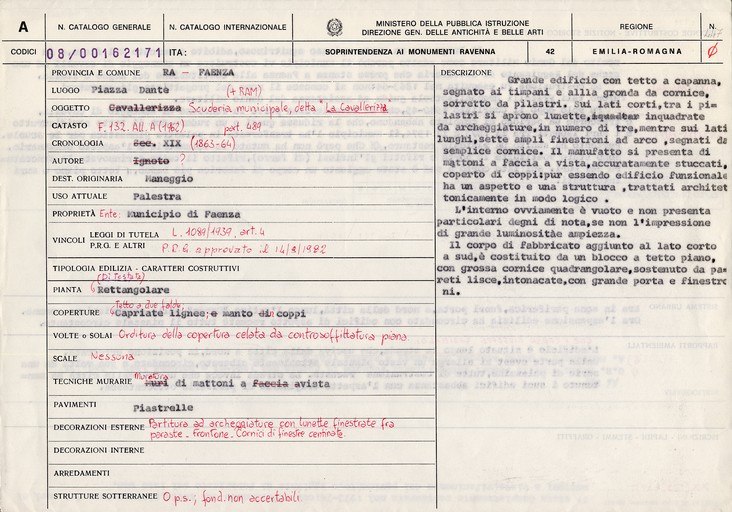 A
N. CATALOGO GENERALE
N. CATALOGO INTERNAZIONALE
MINISTERO DELLA PUBBLICA ISTRUZIONE
DIREZIONE GEN. DELLE ANTICHITÀ E BELLE ARTI
REGIONE
N.
CODICI
08/00162171
ITA:
SOPRINTENDENZA AI MONUMENTI RAVENNA
42
EMILIA-ROMAGNA
PROVINCIA E COMUNE RA - FAENZA
LUOGO Piazza Dante (+ RAM)
OGGETTO Cavallerizza Scuderia municipale, detta "La Cavallerizza
CATASTO F. 132. All. A (1962) part. 489
CRONOLOGIA Sec. XIX (1863-64)
AUTORE Ignoto ?
DEST. ORIGINARIA Maneggio
USO ATTUALE Palestra
PROPRIETÀ Ente: Municipio di Faenza
VINCOLI LEGGI DI TUTELA L. 1089/1939, art. 4
P.R.G. E ALTRI P.R.G. approvato il 14/8/1982
TIPOLOGIA EDILIZIA - CARATTERI COSTRUTTIVI
(Di Testata)
PIANTA Rettangolare
Tetto a due falde;
COPERTURE Capriate lignee; e manto di coppi
VOLTE o SOLAI Orditura della copertura celata da controsoffittatura piana.
SCALE Nessuna
Muratura
TECNICHE MURARIE Muri di mattoni a faccia avista
PAVIMENTI Piastrelle
DECORAZIONI ESTERNE Partitura ad archeggiature con lunette finestrate fra
paraste - Frontone - Cornici di finestre centinate.
DECORAZIONI INTERNE
ARREDAMENTI
STRUTTURE SOTTERRANEE O p.s.; fond. non accertabili.
DESCRIZIONE
Grande edificio con tetto a capanna,
segnato ai timpani e allla gronda da cornice,
sorretto da pilastri. Sui lati corti,tra i pi=
lastri si aprono lunette, inquadrate
da archeggiature,in numero di tre,mentre sui lati
lunghi,sette ampli finestroni ad arco ,segnati da
semplice cornice. Il manufatto si presenta di
mattoni a faccia a vista,accuratamente stuccati,
coperto di coppi:pur essendo edificio funzionale
ha un aspetto e una struttura ,trattati architet
tonicamente in modo logico .
L'interno ovviamente è vuoto e non presenta
particolari degni di nota,se non l'impressione
di grande luminositàe ampiezza.
Il corpo di fabbricato aggiunto al lato corto
a sud,è costituito da un blocco a tetto piano,
con grossa cornice quadrangolare,sostenuto da pa=
reti lisce,intonacate,con grande porta e finestro
ni.